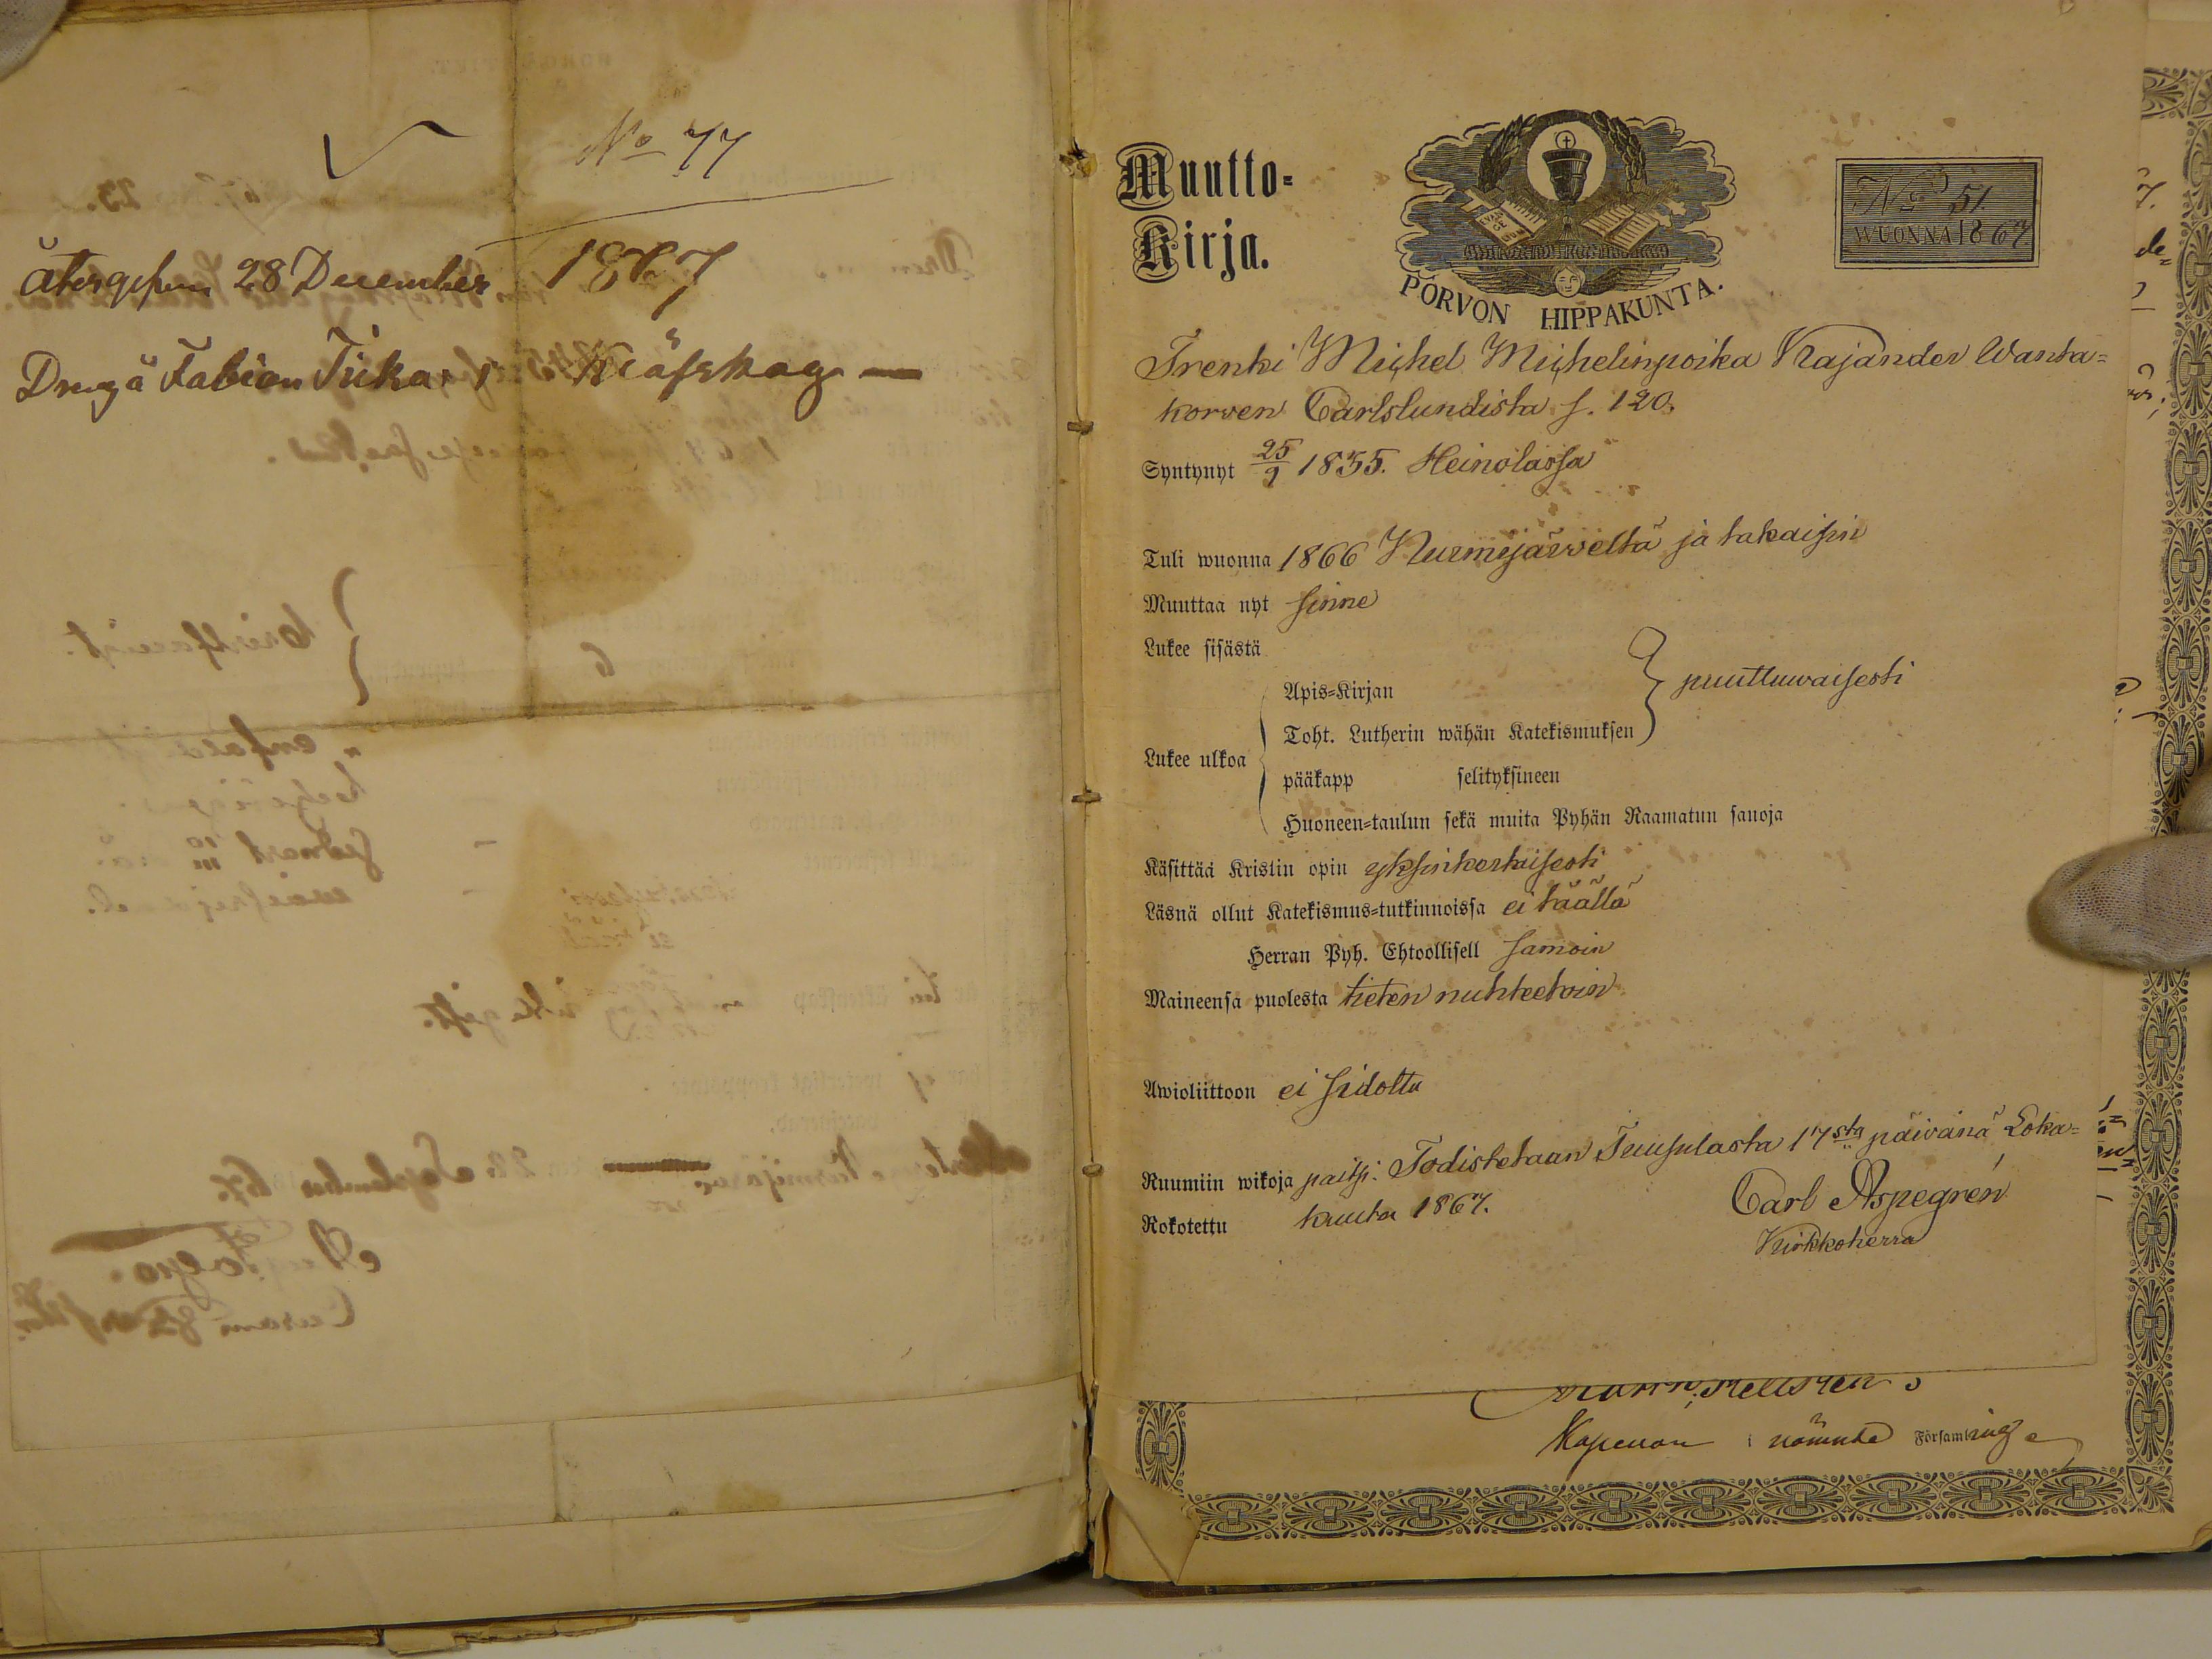 No 77
återgifven 28 December 1867
Dreng å Fabian
Muutto=
Kirja.
EVAN
PORVON HIPPAKUNTA.
No 51.
WUONNA 1867
Trenki Michel Michelinpoika Kajander Wanta=
korven Carlslundista s. 120.
Syntynyt 25/9 1835. Heinolassa
Tuli wuonna 1866 Nurmijärveltä ja takaisin
Muuttaa nyt sinne
Lukee sisästä
Apis=Kirjan
puuttuwaisesti
Toht. Lutherin wähän Katekismuksen
Lukee ulkoa
pääkapp selityksineen
Huoneen=taulun sekä muita Pyhän Raamatun sanoja
Käsittää Kristin opin yksinkertaisesti
Läsnä ollut Katekismus=tutkinnoissa ei täällä
Herran Pyh. Ehtoollisell samoin
Maineensa puolesta tieten nuhteetoin
Awioliittoon ei sidottu
Ruumiin wikoja paitsi. Todistetaan Tuusulasta 17sta päivänä Loka=
Rokotettu kuuta 1867.
Carl Aspegren
Kirkkoherra
nämnde Församling